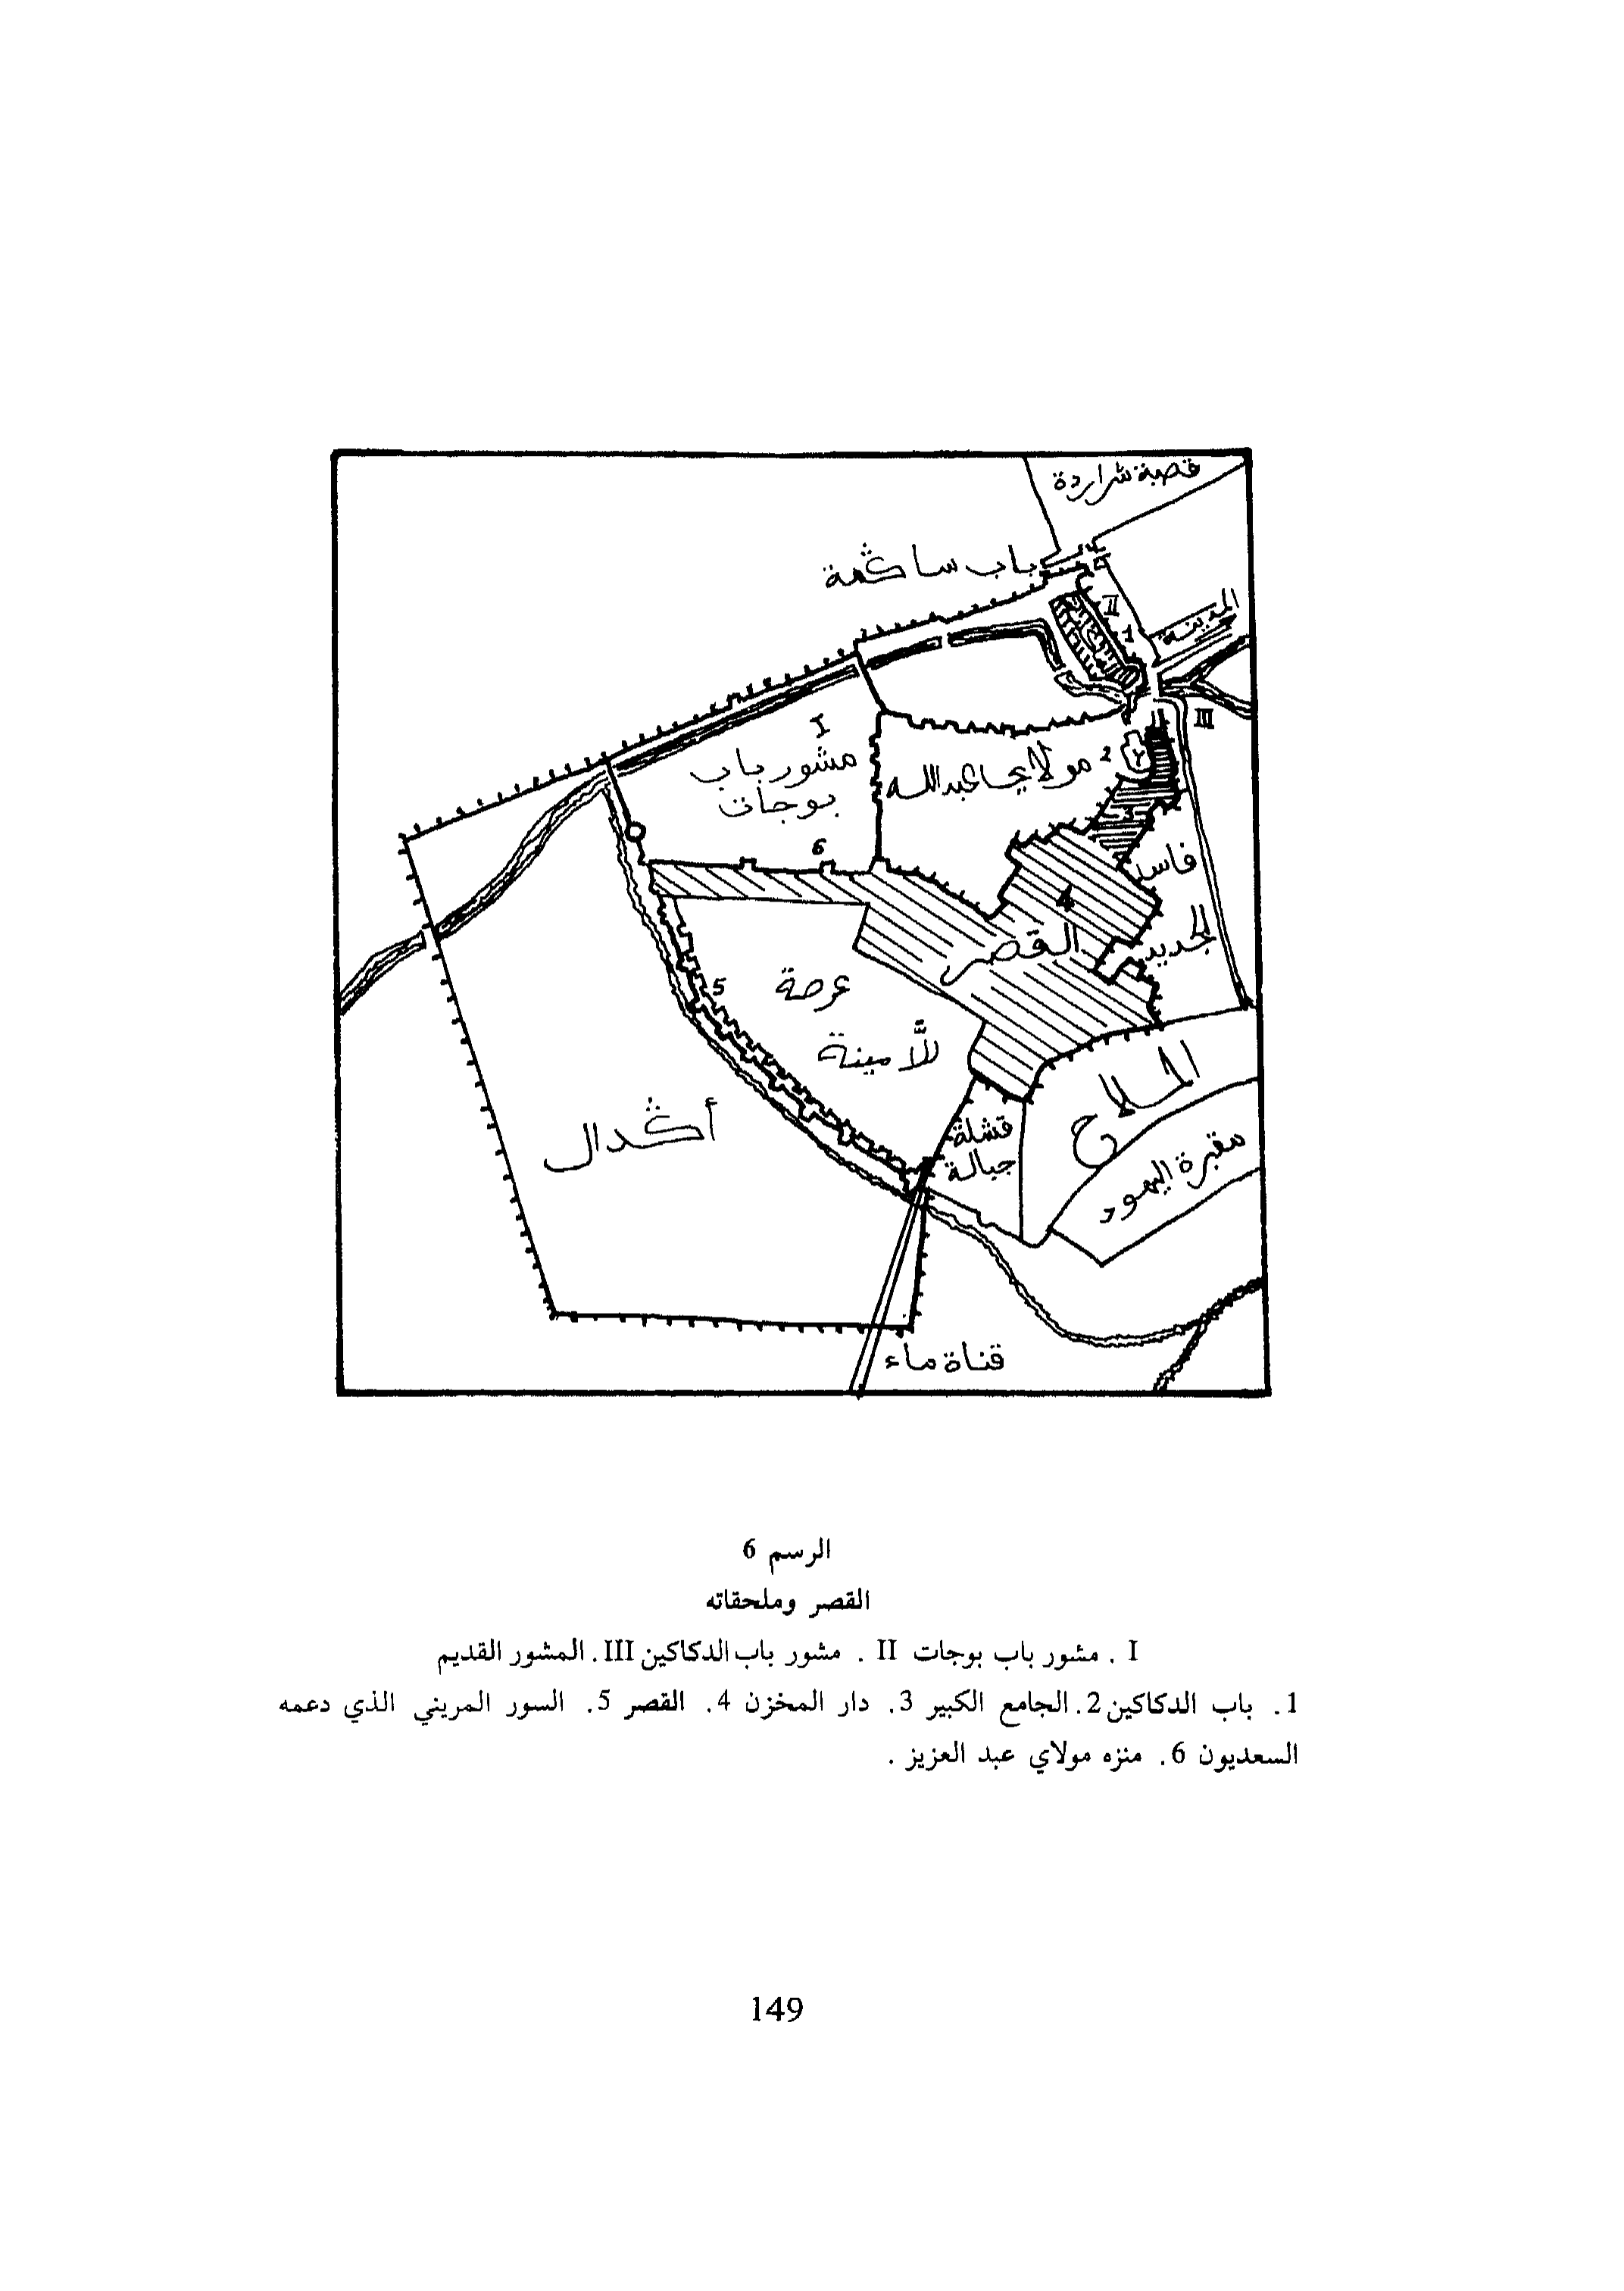 قصبة شراردة
باب ساڭمة
المدينة
II
1
III
I
مشور باب
بوجات
مولاي عبدالله
2
3
6
فاس
الجديد
4
القصر
5
عرصة
للَّا مينة
أڭدال
الملاح
قشلة
جبالة
مقبرة اليهود
قناة ماء
الرسم 6
القصر وملحقاته
I . مشور باب بوجات II . مشور باب الدكاكين III . المشور القديم
1. باب الدكاكين 2. الجامع الكبير 3. دار المخزن 4. القصر 5. السور المريني الذي دعمه
السعديون 6. منزه مولاي عبد العزيز .
149